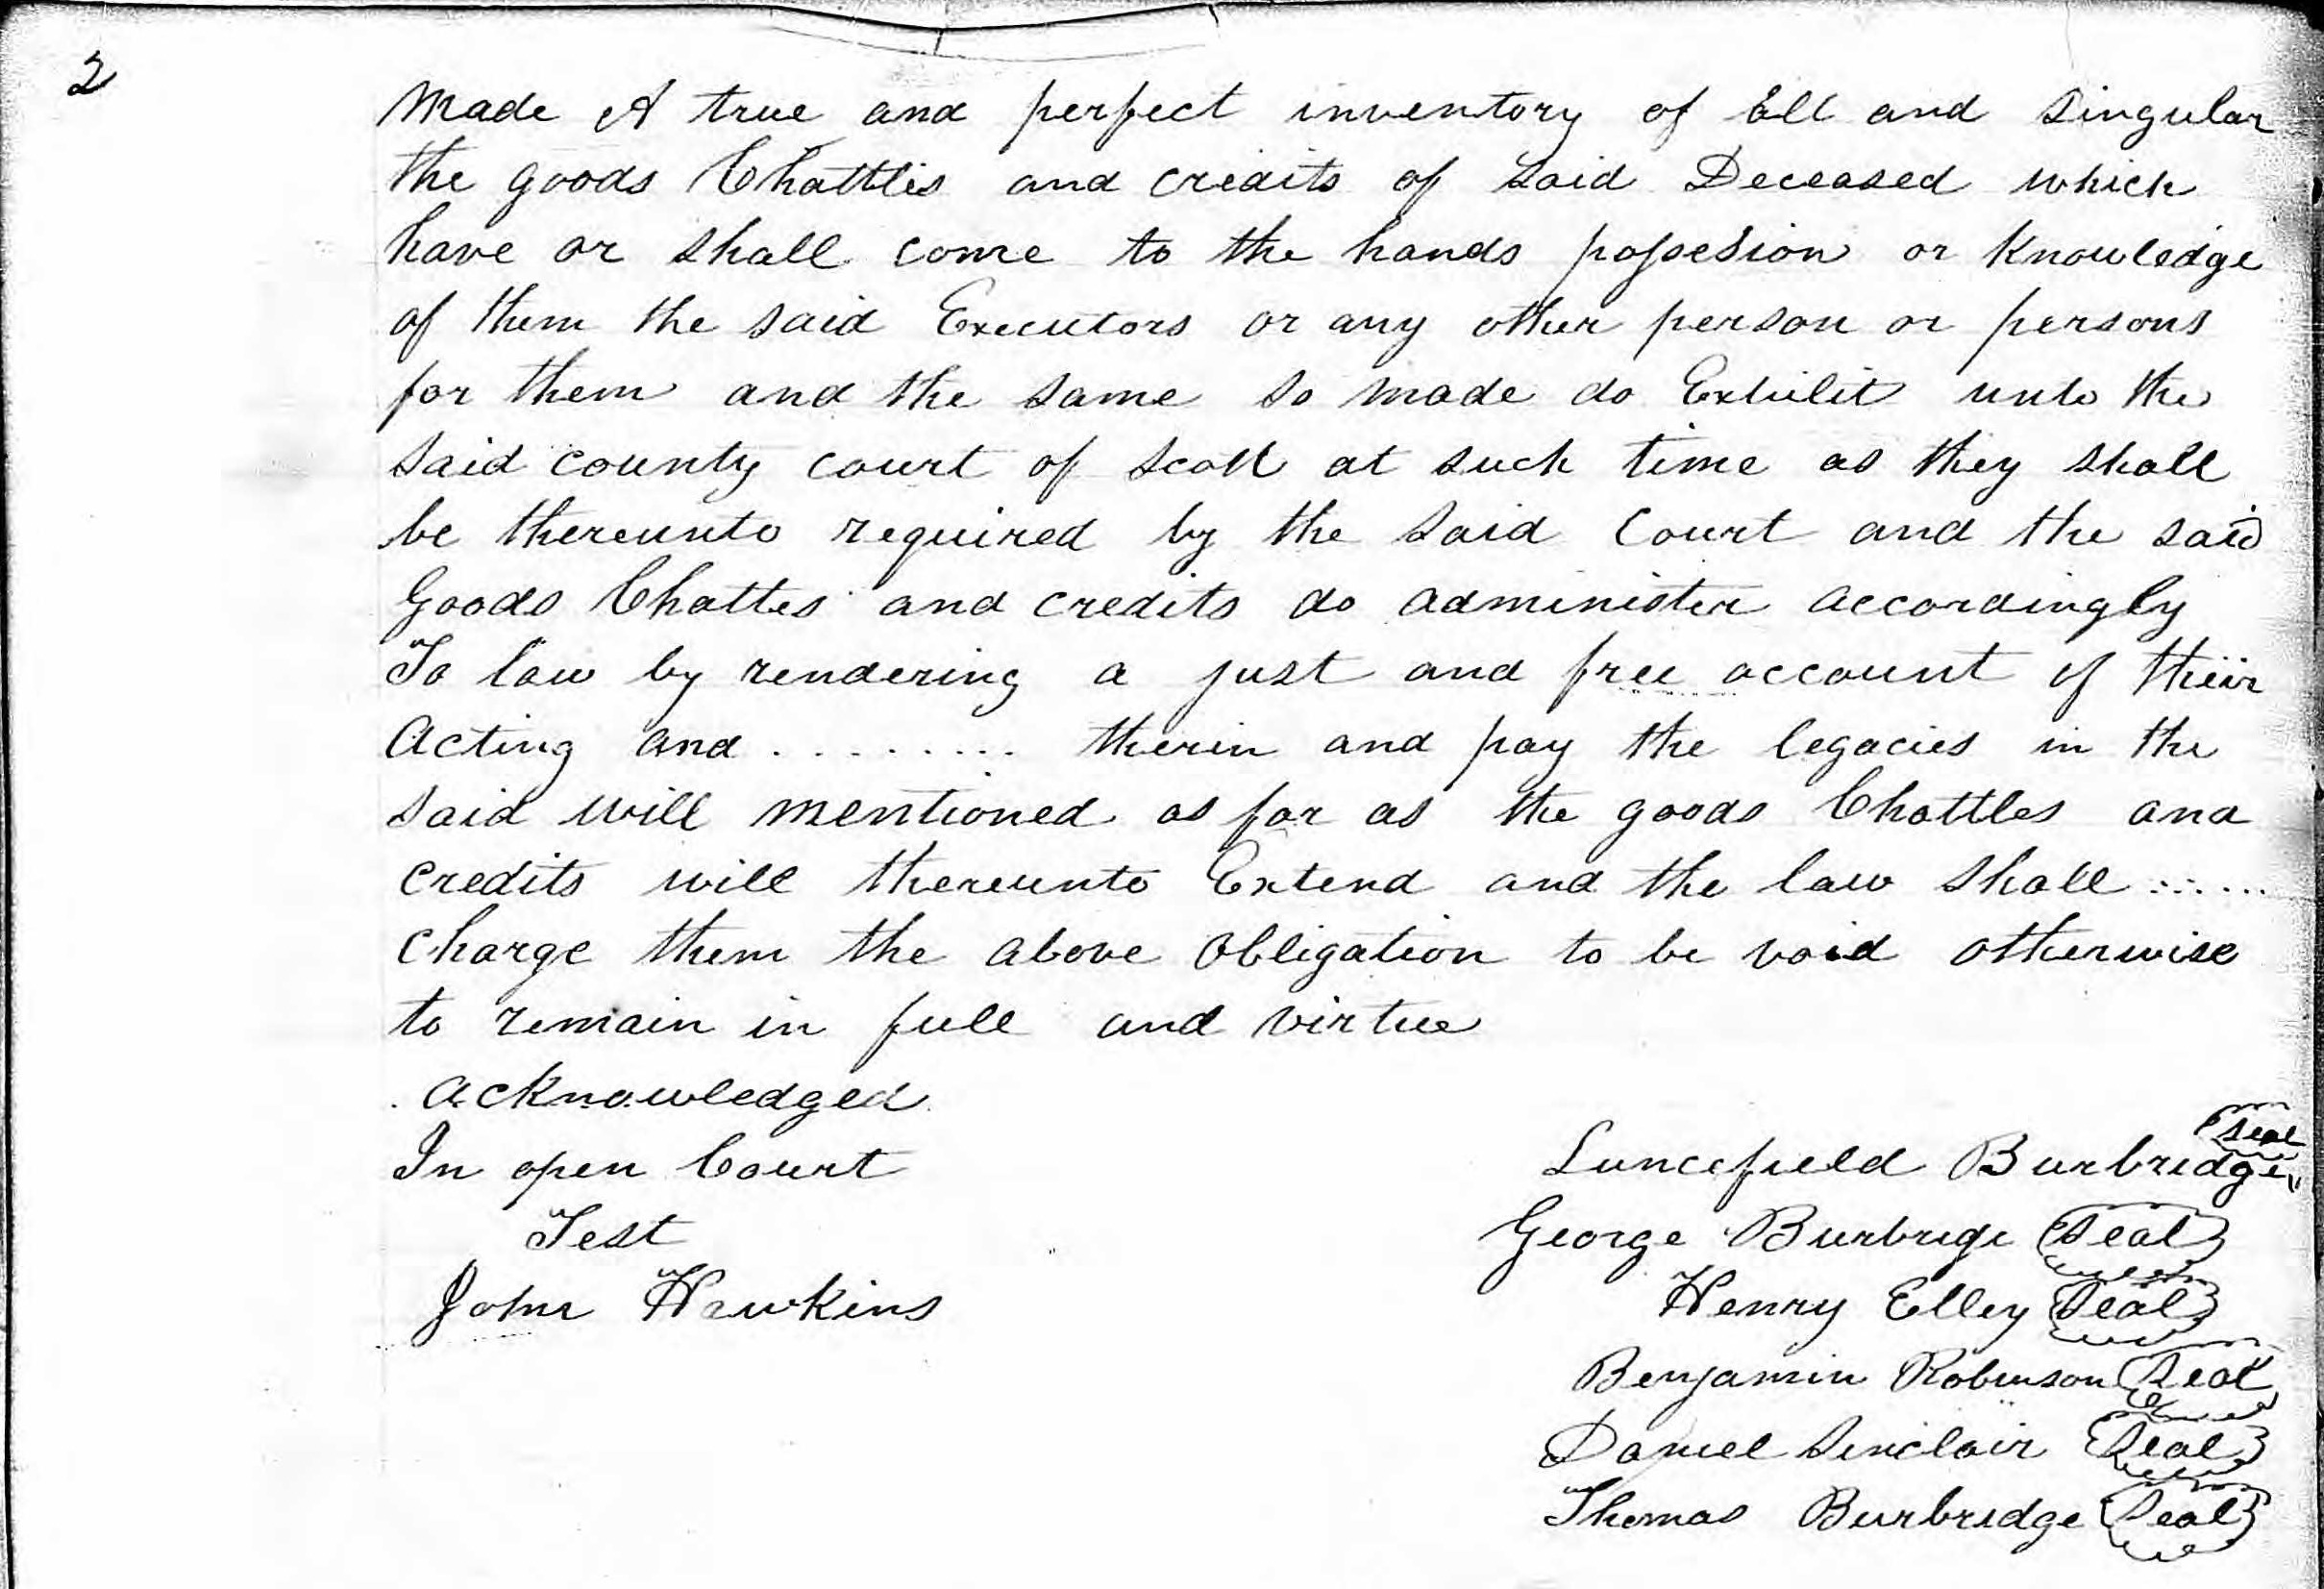 2
Made A true and perfect inventory of All and Singular
the goods Chattles and credits of said Deceased which
have or shall come to the hands possesion or knowledge
of them the said Executors or any other person or persons
for them and the same so made do Exhibit unto the
said county court of Scott at such time as they shall
be thereunto required by the said Court and the said
Goods Chattes and credits do administer accordingly
To law by rendering a just and free account of their
Acting and ......... therin and pay the legacies in the
said will mentioned as far as the goods Chattles and
credits will thereunto Extend and the law shall ......
charge them the above Obligation to be void otherwise
to remain in full and virtue
acknowledged
In open Court
Test
John Hawkins
Luncefield Burbridge Seal
George Burbrige Seal
Henry Elley Seal
Benjamin Robinson Seal
Daniel Sinclair Seal
Thomas Burbridge Seal